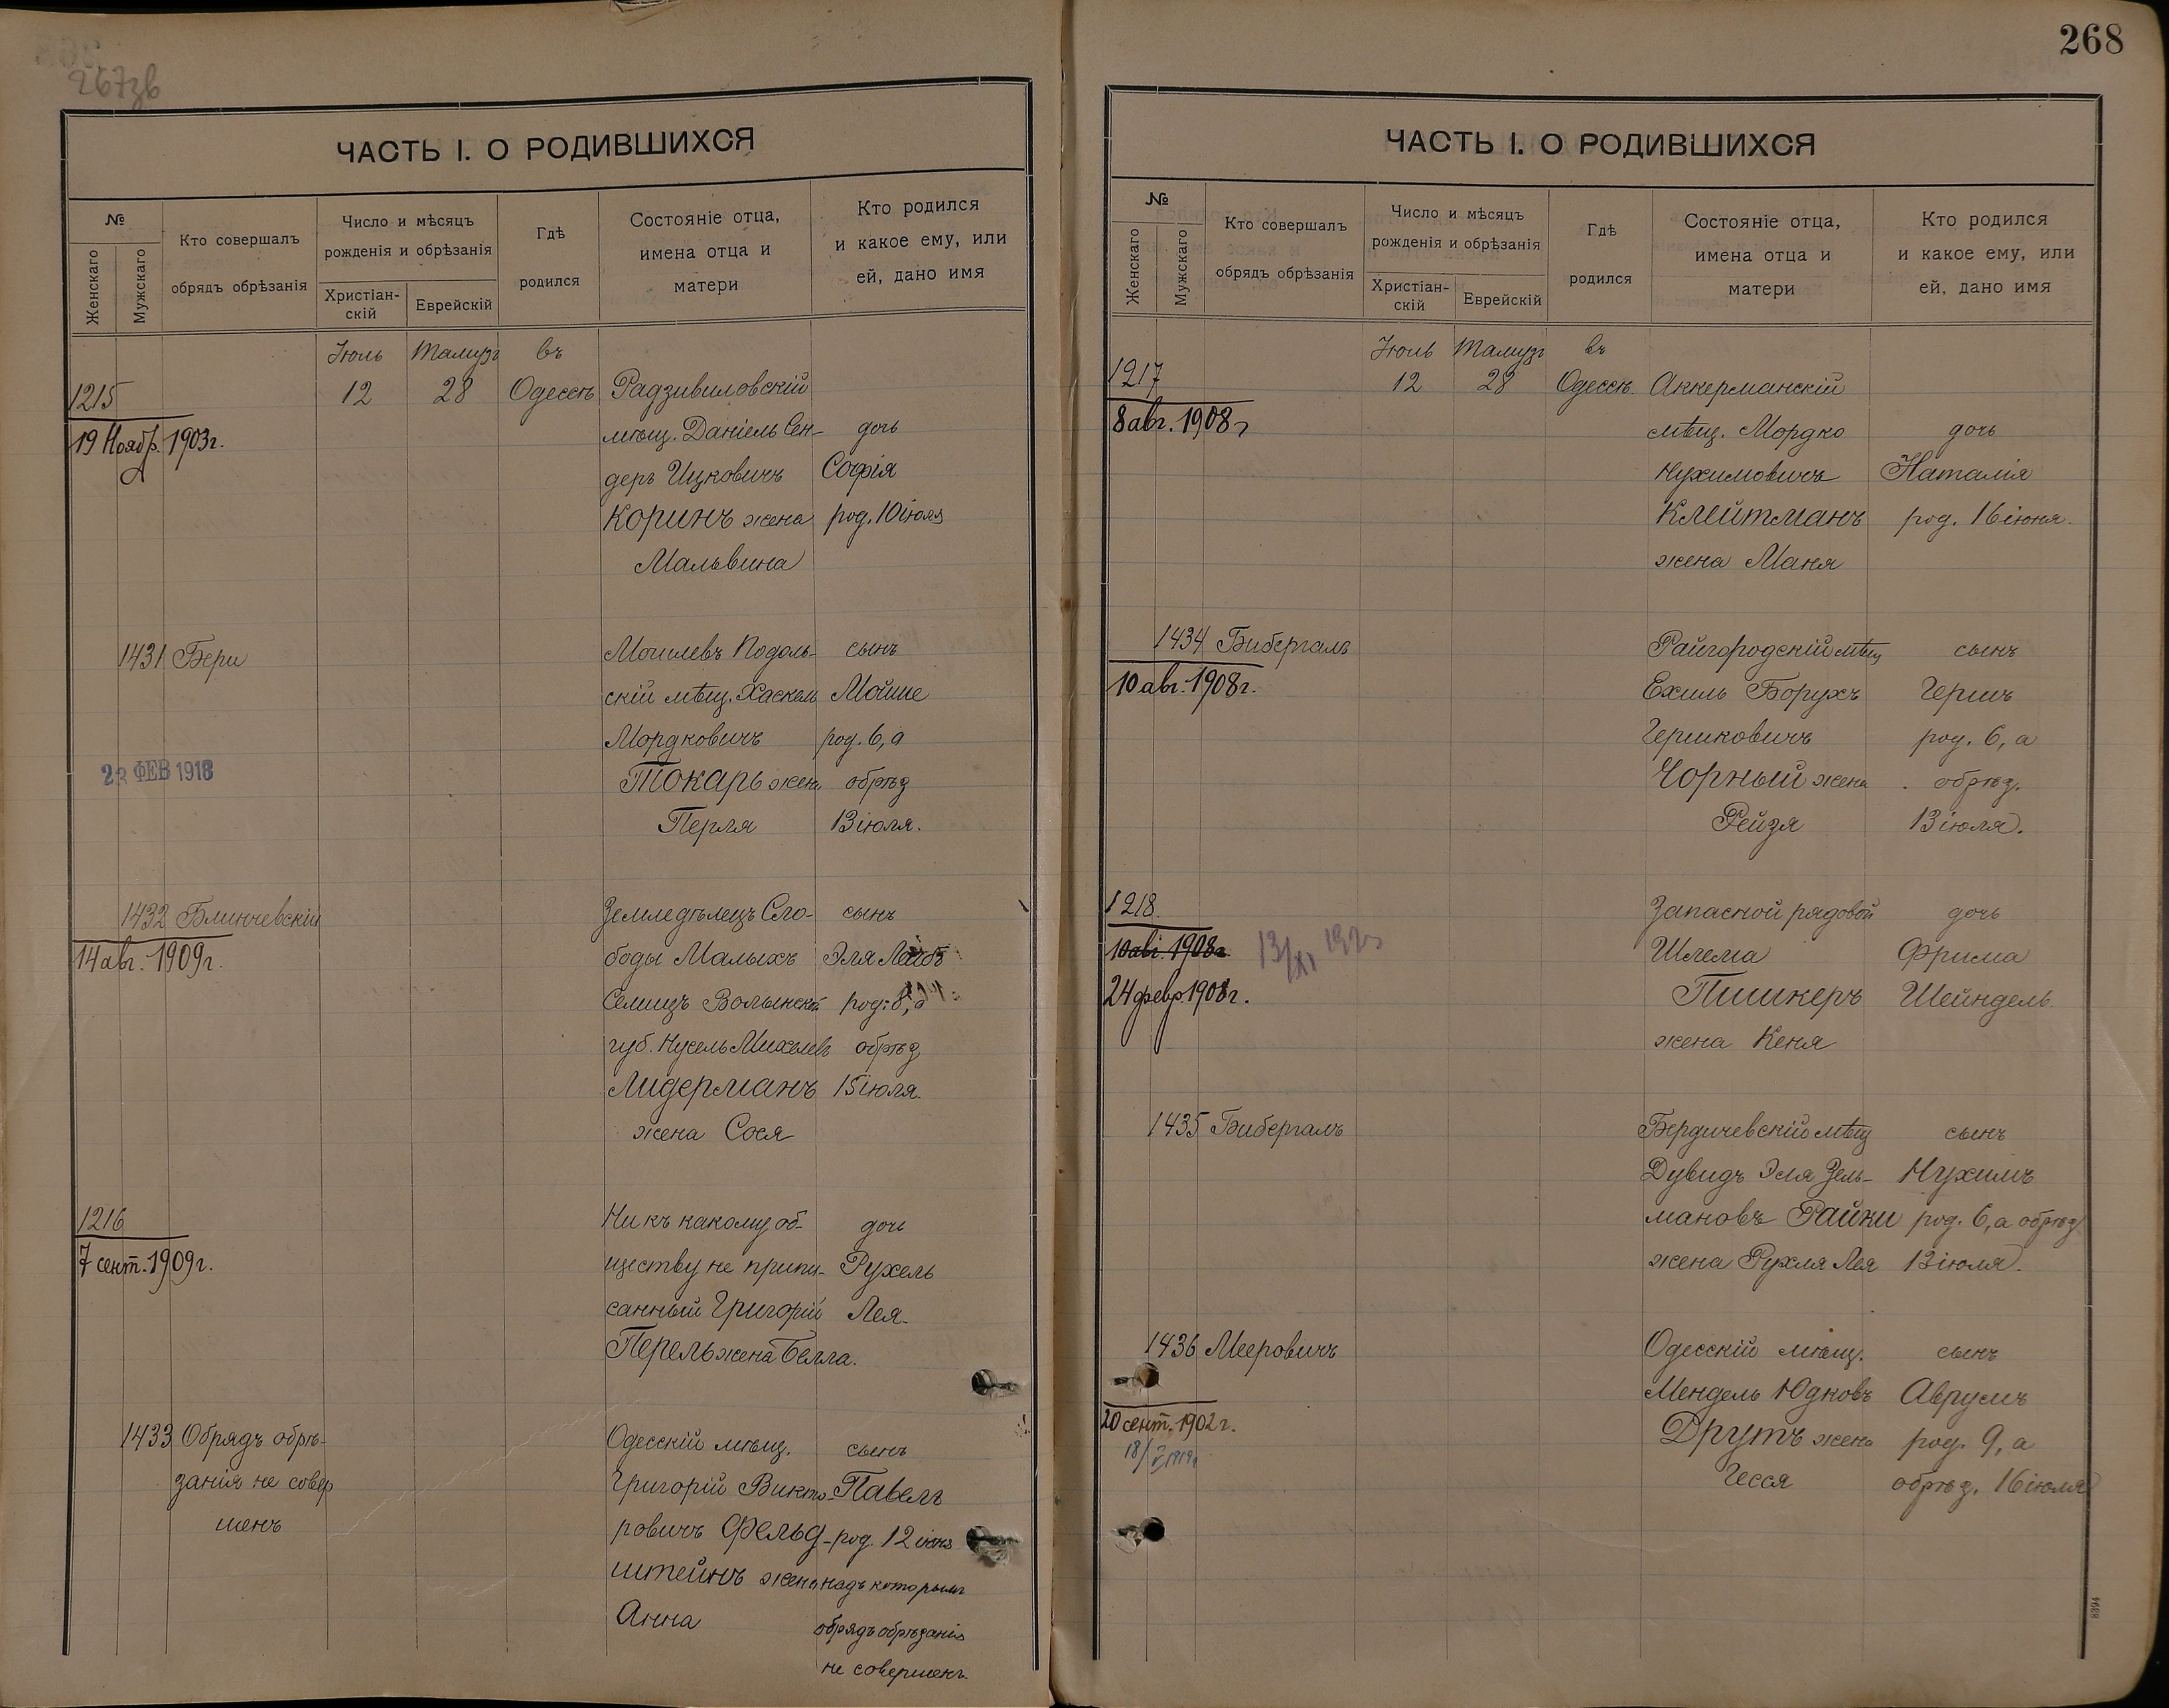 267зв
ЧАСТЬ I. О РОДИВШИХСЯ
№
Женскаго
Мужскаго
Кто совершалъ
обрядъ обрѣзанія
Число и мѣсяцъ
рожденія и обрѣзанія
Христіан-
скій
Еврейскій
Гдѣ
родился
Состояніе отца,
имена отца и
матери
Кто родился
и какое ему, или
ей, дано имя
Іюль Тамузъ въ
1215 12 28 Одессѣ Радзивиловскій
19 Ноябр. 1903г.
мѣщ. Даніель Сен- дочь
деръ Ицковичъ Софія
Коринъ жена род. 10 іюля
Мальвина
1431 Бери Могилевъ Подоль- сынъ
скій мѣщ. Хаскель Мойше
Мордковичъ род. 6, а
23 ФЕВ 1918
Токарь жена обрѣз
Перля 13 іюля.
1432 Блинчевскій Земледѣлецъ Сло- сынъ
14 авг. 1909г.
боды Малыхъ Эля Лейбъ
Селищъ Волынской род. 8, а
губ. Нусель Михелевъ обрѣз
Лидерманъ 15 іюля.
жена Сося
1216 Ни къ какому об- дочь
7 сент. 1909г.
ществу не припи- Рухель
санный Григорій Лея.
Перель жена Белла.
1433 Обрядъ обрѣ- Одесскій мѣщ. сынъ
занія не совер Григорій Викто- Павелъ
шенъ ровичъ Фельд- род. 12 іюня
штейнъ жена надъ которымъ
Анна обрядъ обрѣзанія
не совершенъ.
268
ЧАСТЬ I. О РОДИВШИХСЯ
№
Женскаго
Мужскаго
Кто совершалъ
обрядъ обрѣзанія
Число и мѣсяцъ
рожденія и обрѣзанія
Христіан-
скій
Еврейскій
Гдѣ
родился
Состояніе отца,
имена отца и
матери
Кто родился
и какое ему, или
ей, дано имя
Іюль Тамузъ въ
1217 12 28 Одессѣ. Аккерманскій
8 авг. 1908г
мѣщ. Мордко дочь
Нухимовичъ Наталія
Клейтманъ род. 16 іюня.
жена Маня
1434 Бибергалъ Райгородскій мѣщ сынъ
10 авг. 1908г.
Ехиль Борухъ Гершъ
Гершковичъ род. 6, а
Чорный жена обрѣз.
Рейзя 13 іюля.
1218 Запасной рядовой дочь
10 авг. 1908г.
Шлема Фрима
24 февр. 1908г.
Пишкеръ Шейндель.
жена Кеня
1435 Бибергалъ Бердичевскій мѣщ сынъ
Дувидъ Эля Зель- Нухимъ
мановъ Райки род. 6, а обрѣз
жена Рухля Лея 13 іюля.
1436 Мееровичъ Одесскій мѣщ. сынъ
Мендель Юдковъ Аврумъ
20 сент. 1902г.
Друтъ жена род. 9, а
Гесся обрѣз. 16 іюля
8394